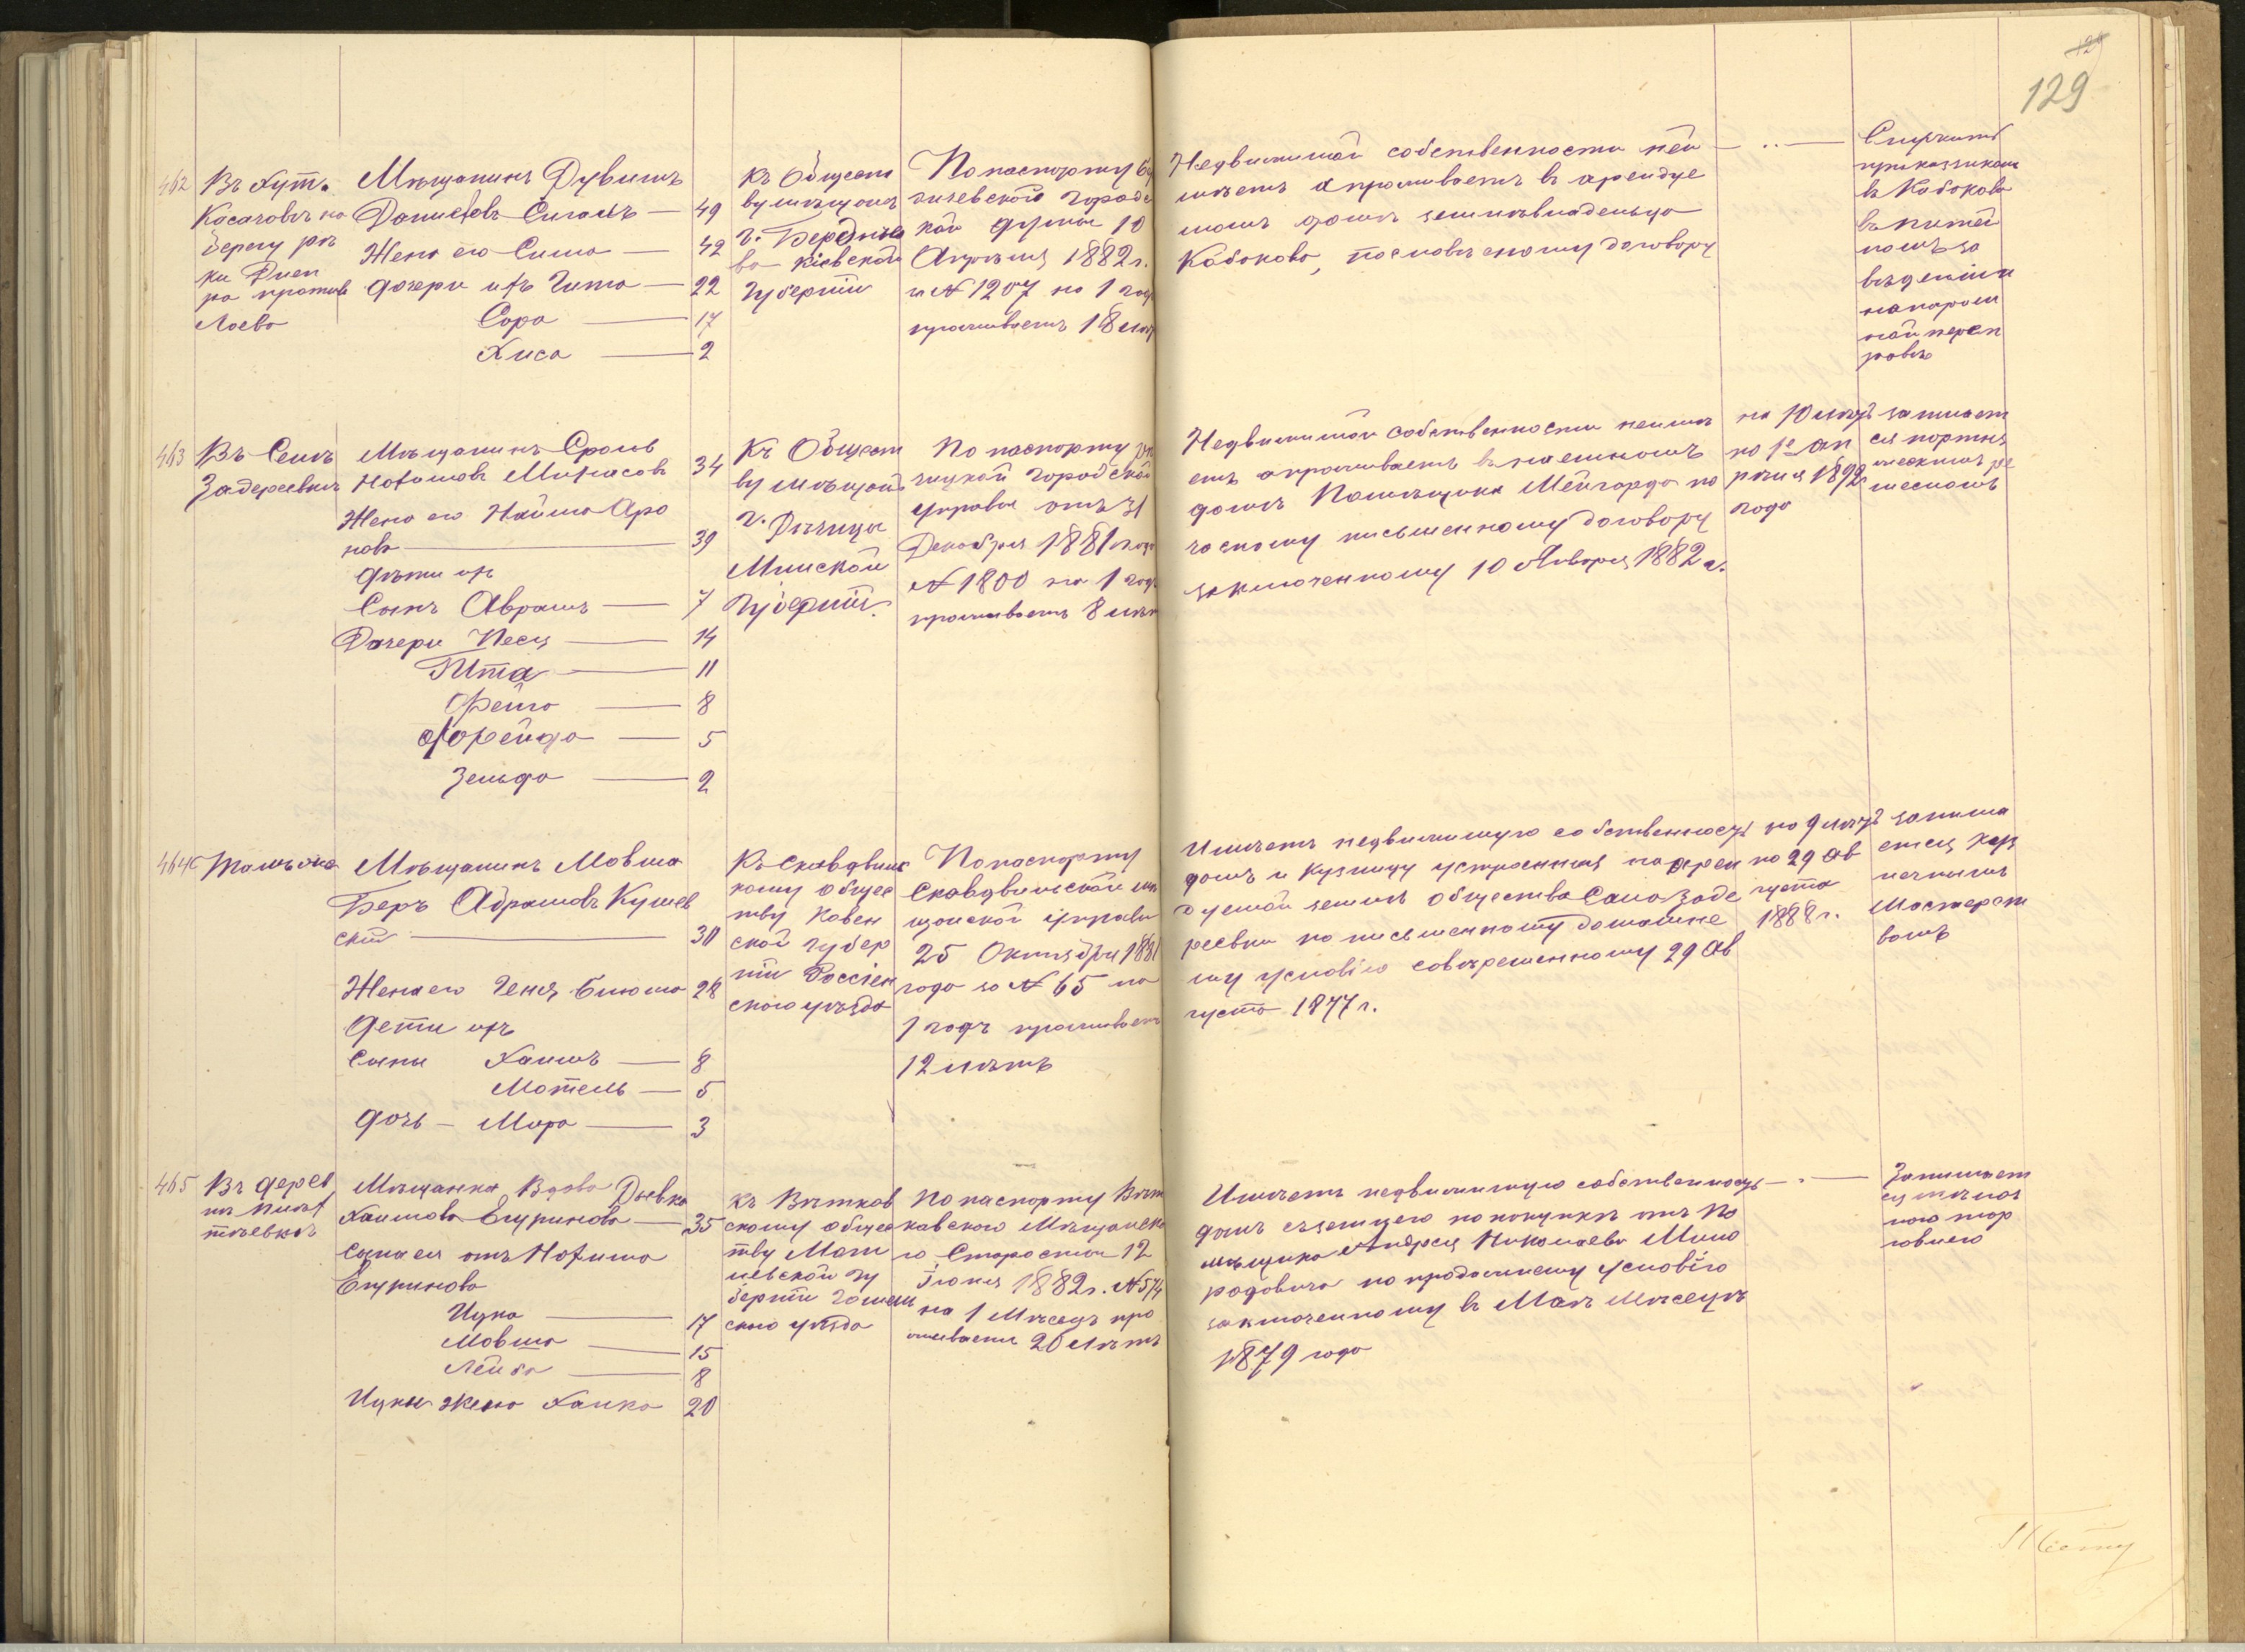 129
129
462
Въ хут.
Касачовѣ на
берегу рѣ
ки Днеп
ра противъ
Лоева
Мѣщанинъ Дувидъ
Даниловъ — 49
Жена его Сима — 42
дочери ихъ Гита — 22
Сора — 17
Хиса — 2
Къ Общест
ву мѣщанъ
г. Бердиче
ва Кіевской
Губерніи
По паспорту Бер
дичевской Городс
кой Думы 10
Апрѣля 1882 г.
и № 1207 на 1 годъ
проживаетъ 18 лѣт
Недвижимой собственности неи
мѣетъ а проживаетъ въ арендуе
момъ домѣ землевладельца
Кобокова, пословесному договору
— .. —
Служитъ
приказчикомъ
въ Кабакова
въ питей
номъ за
веденіи
на паром
ной переп
равѣ
463
Въ Селѣ
Задереевкѣ
Мѣщанинъ Сроль
Нохимовъ — 34
Жена его Найма Аро
нова — 39
дѣти ихъ
Сынъ Аврамъ — 7
Дочери Песя — 14
Гита — 11
Фейга — 8
Фрейда — 5
Зельда — 2
Къ Общест
ву мѣщанъ
г. Рѣчица
Минской
Губерніи.
По паспорту Рѣ
чицкой Городской
управы отъ 31
Декабря 1881 года
№ 1800 на 1 годъ
проживаетъ 8 лѣт
Недвижимой собственности неимѣ
етъ а проживаетъ въ наемномъ
домѣ Помѣщика Мейгарда по
частному письменному договору
заключенному 10 Января 1882 г.
на 10 лѣтъ
по 1е Ап
рѣля 1892
года
занимает
ся портня
жескимъ ре
месломъ
464
тамъ же
Мѣщанинъ Мовша
Беръ Абрамовъ Кушев
скій — 30
Жена его Геня — 28
дети ихъ
Сыны Хаимъ — 8
Мотель — 5
дочь — Мира — 3
Къ Скавдвильс
кому общес
тву Ковен
ской губер
ніи Россіен
скаго уѣзда
По паспорту
Скавдвильской мѣ
щанской управы
25 Октября 1881
года за № 65 на
1 годъ проживаетъ
12 лѣтъ
Имѣетъ недвижимую собственность
домъ и Кузницу устроенныя на арен
дуемой земли общества Села Заде
реевки по письменному домашне
му условію совершенному 29 Ав
густа 1877 г.
на 9 лѣтъ
по 29 Ав
густа
1888 г.
занима
ется Куз
нечнымъ
Мастерст
вомъ
465
Въ дерев
нѣ
Мѣщанка Вдова Дывка
Хаимова Егуринова — 35
Сына ея отъ Нохима
Егуринова
Ицка — 17
Мовша — 15
Лейба — 8
Ицки жена Ханка 20
къ Вѣтков
скому общес
тву Моги
левской гу
берніи Гомель
скаго уѣзда
По паспорту Вѣт
ковского Мѣщанска
го Старосты 12
Іюня 1882 г. № 574
на 1 Мѣсецъ про
живаетъ 20 лѣтъ
Имѣетъ недвижимую собственность
домъ съ землею по покупкѣ отъ По
мѣщика Андрея Николаева Мило
радовича по продажнему условію
заключенному въ Маѣ Мѣсецѣ
1879 года
— . —
Занимает
ся мѣлоч
ною тор
говлею